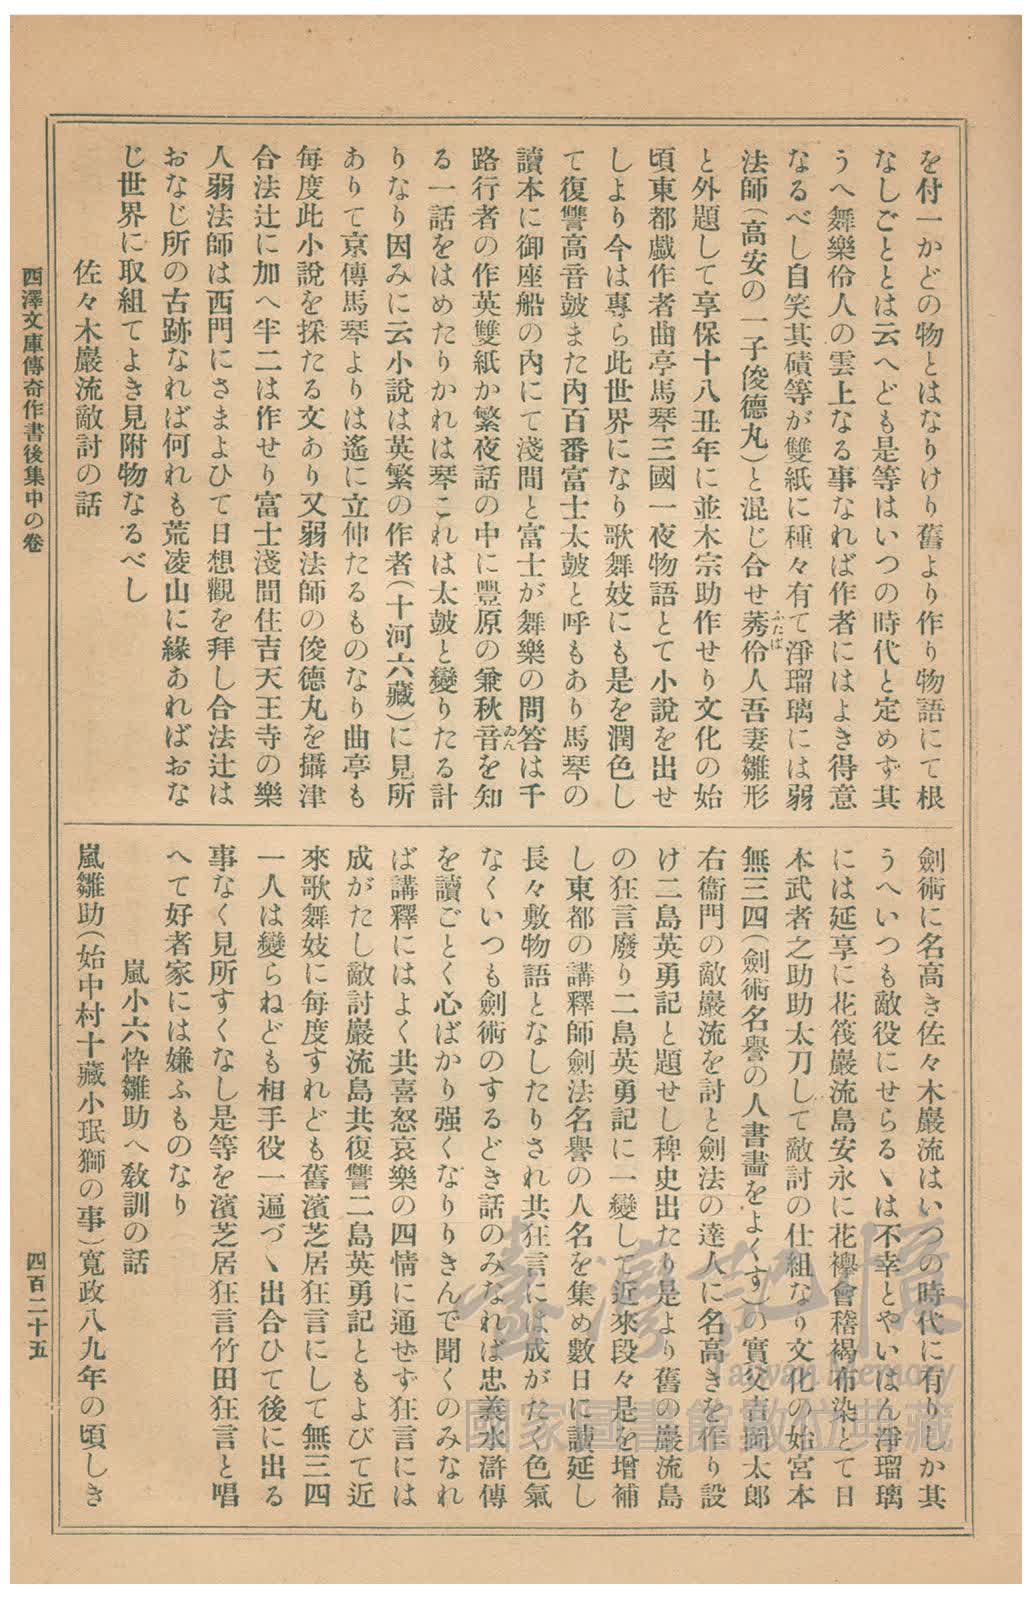 を付一かどの物とはなりけり舊より作り物語にて根
なしごととは云へども是等はいつの時代と定めず其
うへ舞樂伶人の雲上なる事なれば作者にはよき得意
なるべし自笑其磧等が雙紙に種々有て淨瑠璃には弱
法師(高安の一子俊德丸)と混じ合せ莠伶人吾妻雛形
ふたば
と外題して享保十八丑年に並木宗助作せり文化の始
頃東都戯作者曲亭馬琴三國一夜物語とて小說を出せ
しより今は專ら此世界になり歌舞妓にも是を潤色し
て復讐高音皷また内百番富士太皷と呼もあり馬琴の
讀本に御座船の内にて淺間と富士が舞樂の問答は千
路行者の作英雙紙か繁夜話の中に豐原の兼秋音を知
ゐん
る一話をはめたりかれは琴これは太皷と變りたる計
りなり因みに云小說は英繁の作者(十河六藏)に見所
ありて京傳馬琴よりは遙に立伸たるものなり曲亭も
每度此小說を採たる文あり又弱法師の俊德丸を攝津
合法辻に加へ半二は作せり富士淺間住吉天王寺の樂
人弱法師は西門にさまよひて日想觀を拜し合法辻は
おなじ所の古跡なれば何れも荒凌山に緣あればおな
じ世界に取組てよき見附物なるべし
佐々木巖流敵討の話
劍術に名高き佐々木巖流はいつの時代に有りしか其
うへいつも敵役にせらるゝは不幸とやいはん淨瑠璃
には延享に花筏巖流島安永に花襷會稽褐布染とて日
本武者之助助太刀して敵討の仕組なり文化の始宮本
無三四(劍術名譽の人書畵をよくす)の實父吉岡太郎
右衞門の敵巖流を討と劍法の達人に名高きを作り設
け二島英勇記と題せし稗史出たり是より舊の巖流島
の狂言廢り二島英勇記に一變して近來段々是を增補
し東都の講釋師劍法名譽の人名を集め數日に讀延し
長々敷物語となしたりされ共狂言には成がたく色氣
なくいつも劍術のするどき話のみなれば忠義水滸傳
を讀ごとく心ばかり强くなりりきんで聞くのみなれ
ば講釋にはよく共喜怒哀樂の四情に通せず狂言には
成がたし敵討巖流島共復讐二島英勇記ともよびて近
來歌舞妓に每度すれども舊濱芝居狂言にして無三四
一人は變らねども相手役一遍づゝ出合ひて後に出る
事なく見所すくなし是等を濱芝居狂言竹田狂言と唱
へて好者家には嫌ふものなり
嵐小六忰雛助へ敎訓の話
嵐雛助(始中村十藏小珉獅の事)寬政八九年の頃しき
西澤文庫傳奇作書後集中の卷
四百二十五
臺灣記憶
Taiwan Memory
國家圖書館數位典藏